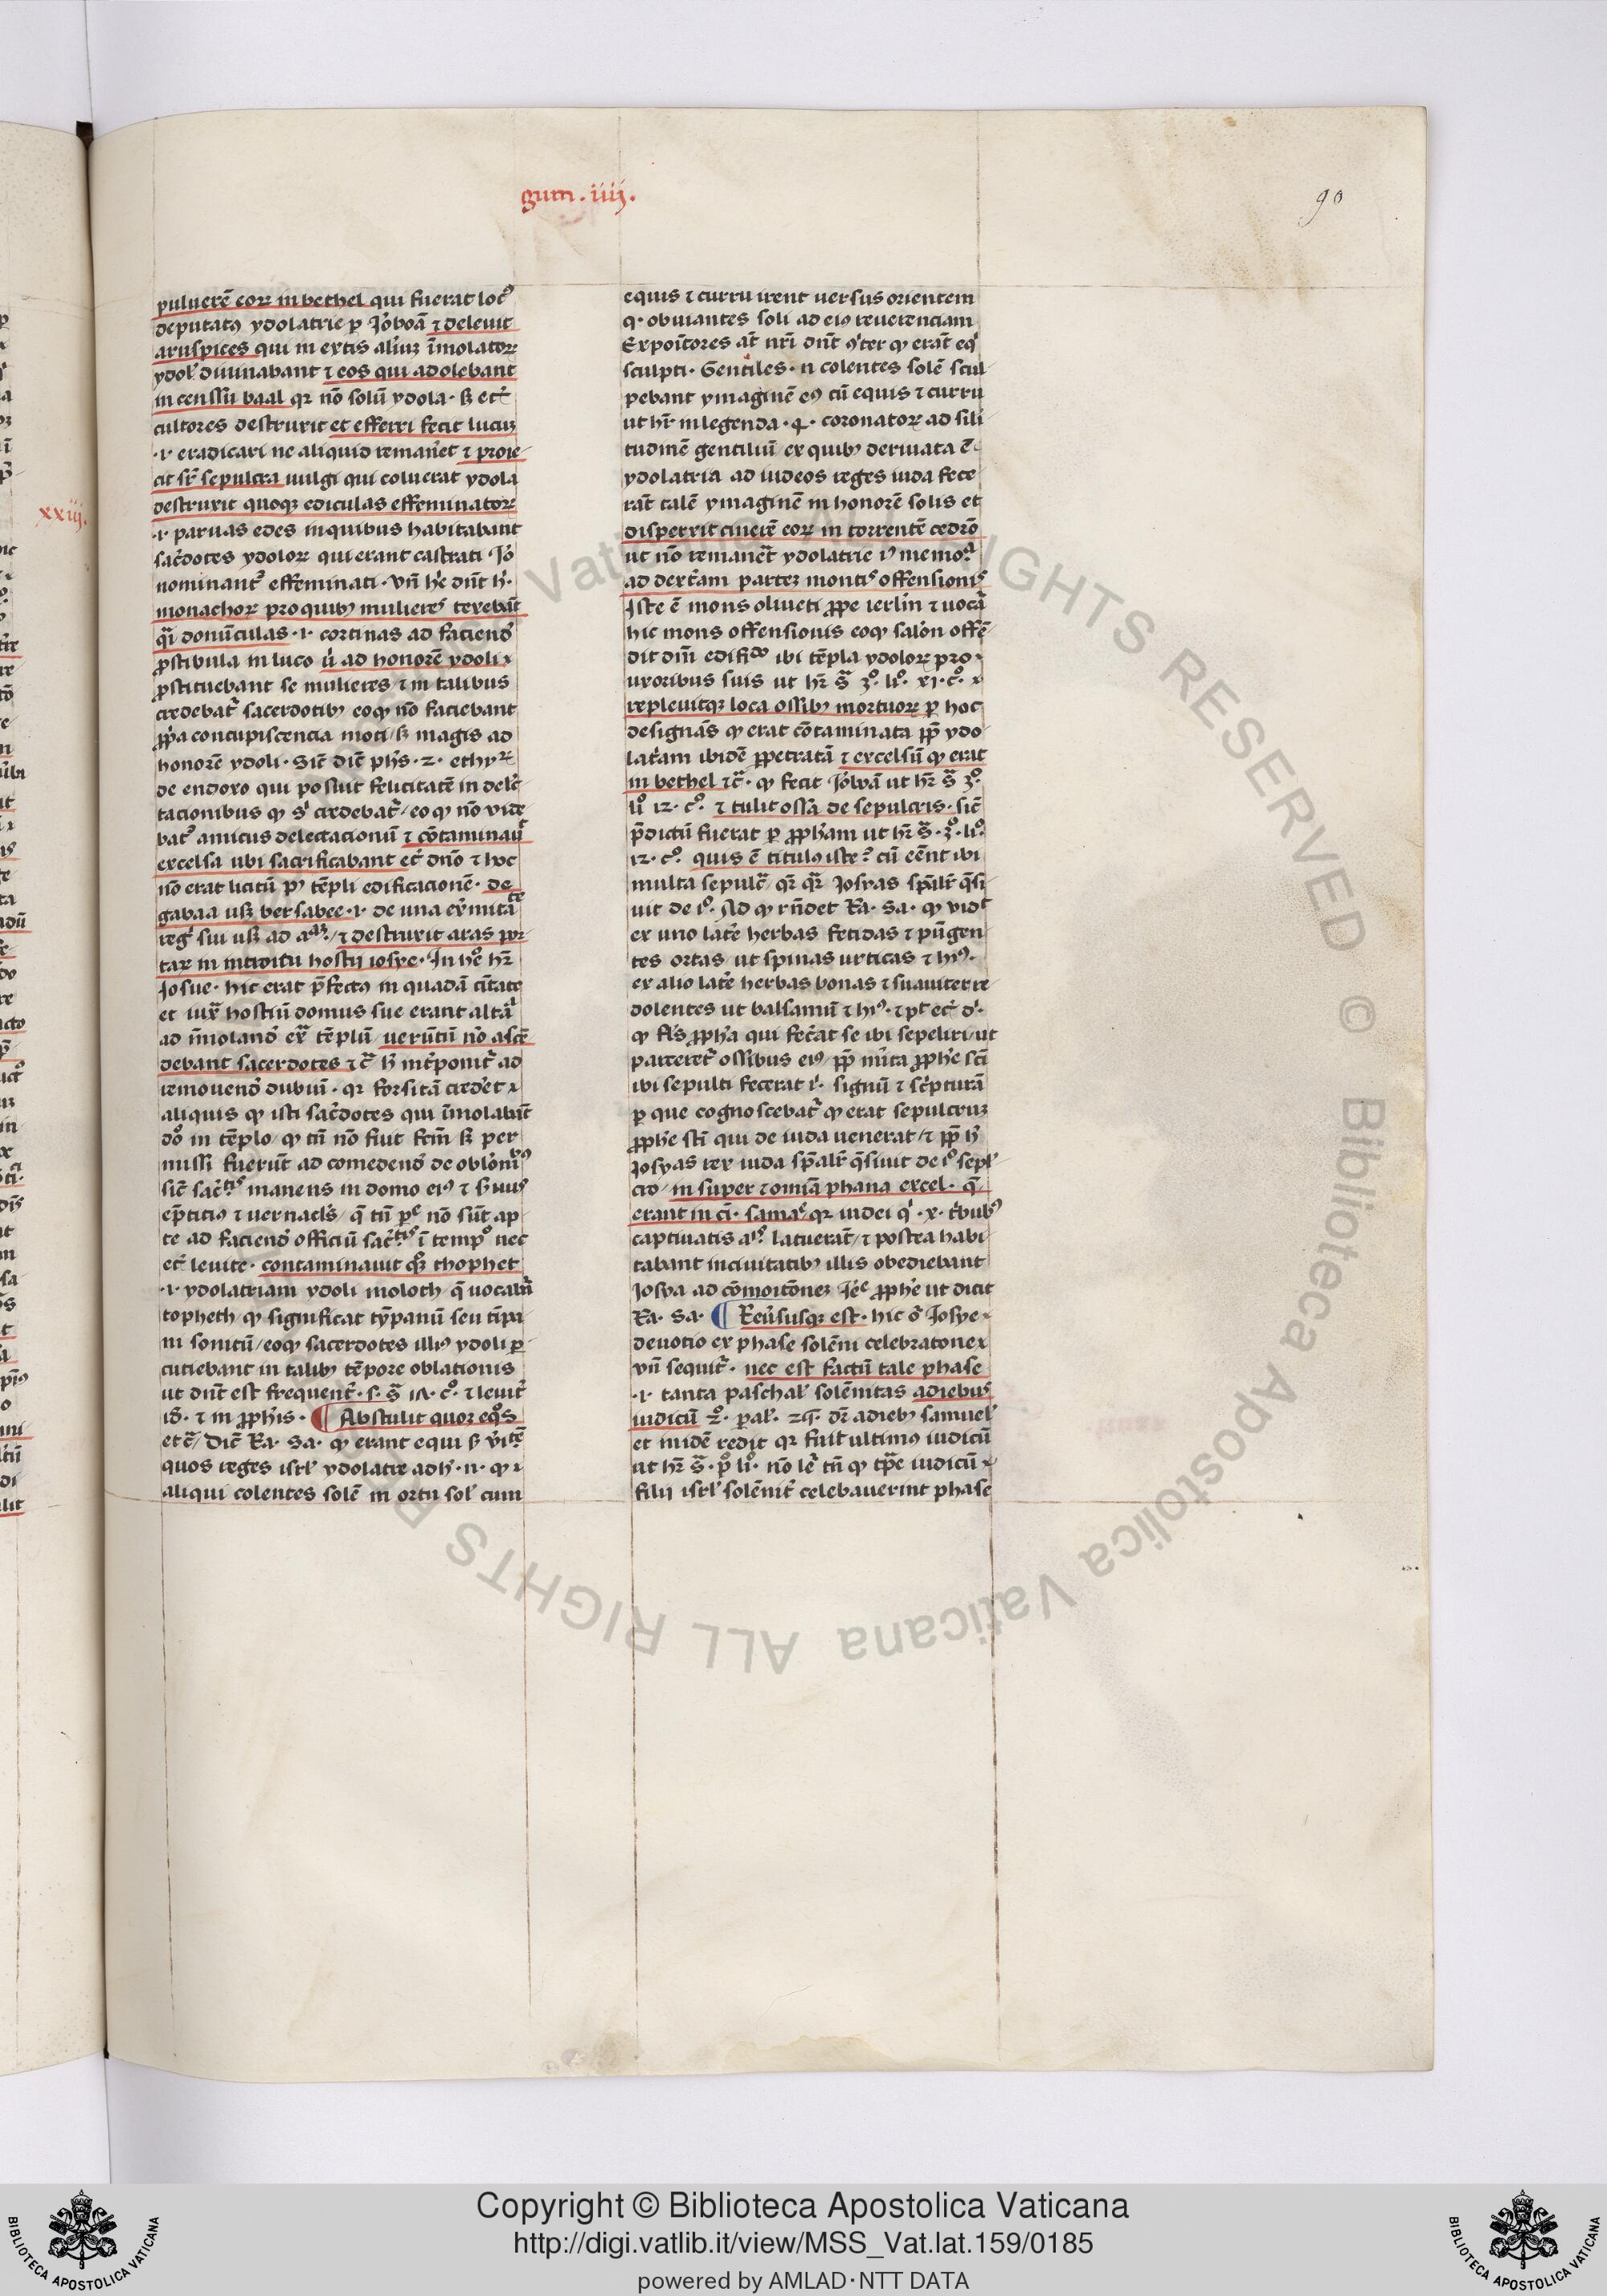 gum . iiij.
90
xxiij.
puluerē eoꝝ in bethel qui fuerat locꝰ
deputatꝰ ydolatrie ꝑ Jōboā ⁊ deleuit
aruspices qui in extis aliuȝ īmolatoꝝ
ydol diuinabant ⁊ eos qui adolebant
in censsū baal qꝛ nō solū ydola · sꝫ et
cultores destruxit et efferri fecit lucuȝ
·i· eradicari ne aliquid remanet ⁊ proie
cit sr̄ sepulcra uulgi qui coluerat ydola
destruxit quoqꝫ ediculas effeminatoꝝ
·i· paruas edes in quibus habitabant
sac̄dotes ydoloꝝ qui erant castrati · Jō
nominantᷣ effeminati · vn̄ hē dn̄t h̄·
monachoꝝ pro quibꝫ mulieres texebāt
q̄i domūculas · i· cortinas ad faciend
ꝓstibula in luco ū ad honorē ydoli
ꝓstituebant se mulieres ⁊ in talibus
credebat sacerdotibꝫ eo ꝙ nō faciebant
ꝓpa concupiscencia moti / sꝫ magis ad
honorē ydoli · Sic̄ dic̄ ph̄s · 2 · ethyᵒꝝ
de endoxo qui posuit felicitatē in delc̄
tacionibus ꝙ s credebat / eo ꝙ nō vide
batᷣ amicus delectacionū ⁊ cōtaminauᵗ
excelsa ubi sacrificabant et dn̄o ⁊ hoc
nō erat licitū pꝰ tēpli edificacionē · de
gabaa usꝫ bersabee · i· de una ex̄mitate
reg sui usꝫ ad aᵃᵐ / ⁊ destruxit aras por
taꝝ in introitu hostij iosye · In heᵒ hr̄
Josue · hic erat p̄fectꝰ in quadā ciuitate
et iuxᵃ hostiū domus sue erant altāᵃ
ad īmoland exᵃ tēplū / uerūtū nō ascē
debant sacerdotes ⁊c̄ h̄ int̄ponit ad
remouend dubiū · qꝛ forsitā credet
aliquis ꝙ isti sac̄dotes qui īmolabāt
dō in tēplo / ꝙ tn̄ nō fiut fcm̄ sꝫ per
missi fuerūt ad comedend de oblōnibꝰ
sic̄ sac̄tis manens in domo eiꝰ ⁊ s̄uus
ep̄ticiꝰ ⁊ uernacls / q̄ tn̄ pᵉ nō sūt ap
te ad faciend officiū sac̄tis ī tempᵒ nec
et leuite · contaminauit qꝫ thophet
·i· ydolatriam ydoli moloth q̄ uocabat
topheth ꝙ significat tȳpanū seu tīpa
ni sonitū / eo ꝙ sacerdotes illiꝰ ydoli ꝑ
cutiebant in talibꝫ tēpore oblationis
ut dn̄t est frequent̄ · s · s̄ 1Λ · cᵒ · ⁊ leuit
18 · ⁊ in ꝓphīs · ¶ Abstulit quoꝫ eqᵒs
etc̄ / Dic̄ Ra · Sa · ꝙ erant equi sꝫ v̄itē
quos reges isrl ydolatre adh · n · ꝙ
aliqui colentes solē in ortu sol cum
equis ⁊ curru irent uersus orientem
q· obuiantes soli ad eiꝰ reuerenciam
Expoītores at̄ nr̄i dn̄t qᵃter ꝙ erāt eqͥ
sculpti · Gentiles · n colentes solē scul
pebant ymaginē eiꝰ cū equis ⁊ curru
ut hr̄ in legenda · 4 · coronatoꝝ ad sili
tudinē gentiliū ex quibꝫ deriuata ē
ydolatria ad iudeos reges iuda fece
rāt talē ymaginē in honorē solis et
disperxit cinerē eoꝝ in torrentē cedrō
ut nō remanet ydolatrie n̄ memoᵃ
ad dextam parteȝ montis offensionis
Iste ē mons oliueti ꝓpe ierlīn ⁊ uocāᷣ
hic mons offensionis eo ꝙ salōn offē
dit dm̄ edificᵈᵒ ibi tēpla ydoloꝝ pro
uxoribus suis ut hr̄ s̄ 3ᵒ · liᵒ · xi · cᵒ ·
repleuitqꝫ loca ossibꝫ mortuoꝝ ꝑ hoc
designās ꝙ erat cōtaminata ꝓp̄ ydo
latiam ibidē ꝑpetratā ⁊ excelsū ꝙ erat
in bethel ⁊c̄ · ꝙ fecit Jōboā ut hr̄ s̄ 3ᵒ ·
liᵒ 12 · cᵒ · ⁊ tulit ossa de sepulcris · sic̄
p̄dictū fuerat ꝑ ꝓph̄am ut hr̄ s̄ · 3 · liᵒ ·
12 · cᵒ · quis ē titulꝰ iste ? cū eēnt ibi
multa sepulc̄ / qr̄ qr̄ Josyas sp̄alr̄ q̄si
uit de iᵒ · Ad ꝙ rn̄det Ra · Sa · ꝙ vidᵗ
ex uno late herbas fetidas ⁊ pūgen
tes ortas / ut spinas urticas ⁊ hiᵒ ·
ex alio late herbas bonas ⁊ suauiter re
dolentes ut balsamū ⁊ hiᵒ · ⁊ pᵗ et d ·
ꝙ fls ꝓph̄a qui fec̄at se ibi sepeliri / ut
parceret ossibus eiꝰ / ꝓp̄ mīta ꝓph̄e sci
ibi sepulti fecerat i · signū ⁊ sc̄pturā
ꝑ que cognoscebat ꝙ erat sepulcruȝ
ꝓph̄e sci qui de iuda uenerat / ⁊ ꝓp̄ h̄
Josyas rex iuda sp̄alr̄ q̄siuit de iᵒ sepl
cro / in super ⁊ omīa phana excel · q̄
erant in ci · samaᵉ qꝛ iudei qͥ · x · tbubꝰ
captiuatis aⁱᵒ latuerat / ⁊ postea habi
tabant in ciuitatibꝫ illis obediebant
Josya ad cōmoitōneȝ Jeᵉ ꝓph̄e ut dicit
Ra · Sa · ¶ Reūsusqꝫ est · hic ō Josye
deuotio ex phase solēni celebratone
vn̄ sequit · nec est factū tale phase
·i· tanta paschal solēnitas a diebus
iudicū 2ᵒ · pal · 24 · dr̄ a diebꝫ samuel
et in idē redit qꝛ fuit ultimꝰ iudicū
ut hr̄ s̄ · pᵒ liᵒ · nō le tn̄ ꝙ tp̄e iudicū
filij isrl solēnit celebauerint phase
Biblioteca Apostolica Vaticana ALL RIGHTS RESERVED ©
Copyright © Biblioteca Apostolica Vaticana
http://digi.vatlib.it/view/MSS_Vat.lat.159/0185
powered by AMLAD·NTT DATA
BIBLIOTECA APOSTOLICA VATICANA
BIBLIOTECA APOSTOLICA VATICANA